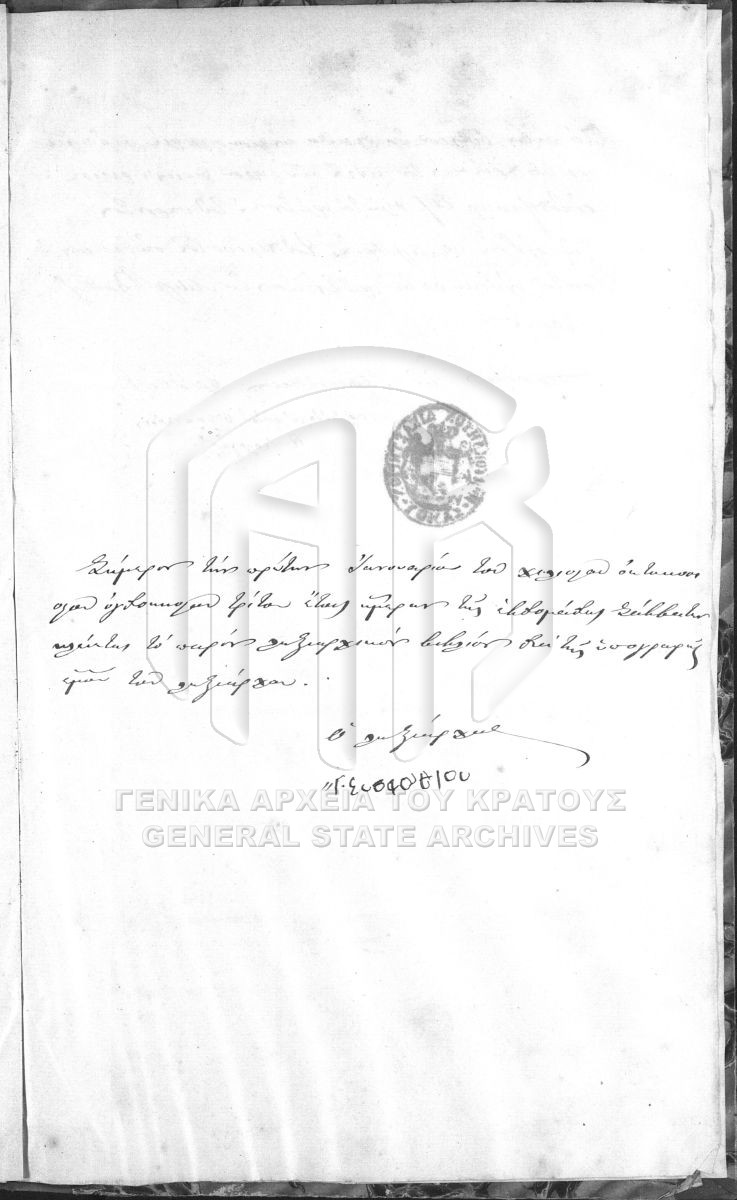 Σήμερον τὴν πρώτην Ἰανουαρίου τοῦ χιλιοστοῦ ὀκτακοσι
οστοῦ ὀγδοηκοστοῦ τρίτου ἔτους ἡμέραν τῆς ἑβδομάδος Σάββατον
κλείεται τὸ παρὸν ληξιαρχικὸν βιβλίον διὰ τῆς ὑπογραφῆς
ἐμοῦ τοῦ ληξιάρχου.
Ὁ ληξίαρχος
ΓΕΝΙΚΑ ΑΡΧΕΙΑ ΤΟΥ ΚΡΑΤΟΥΣ
GENERAL STATE ARCHIVES